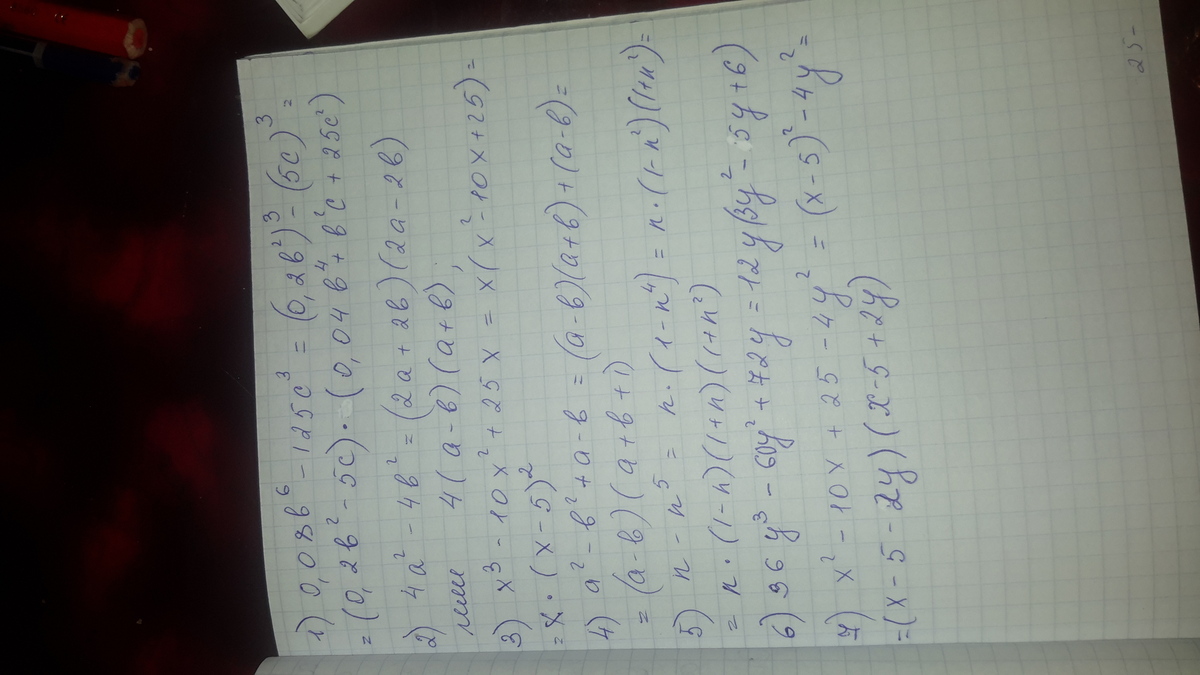 1) 0,08b⁶ - 125c³ = (0,2b²)³ - (5c)³ =
= (0,2b² - 5c)·(0,04b⁴ + b²c + 25c²)
2) 4a² - 4b² = (2a + 2b)(2a - 2b)
или 4(a - b)(a + b),
3) x³ - 10x² + 25x = x(x² - 10x + 25) =
= x·(x - 5)²
4) a² - b² + a - b = (a - b)(a + b) + (a - b) =
= (a - b)(a + b + 1)
5) n - n⁵ = n·(1 - n⁴) = n·(1 - n²)(1 + n²) =
= n·(1 - n)(1 + n)(1 + n²)
6) 36y³ - 60y² + 72y = 12y(3y² - 5y + 6)
7) x² - 10x + 25 - 4y² = (x - 5)² - 4y² =
= (x - 5 - 2y)(x - 5 + 2y)
25-